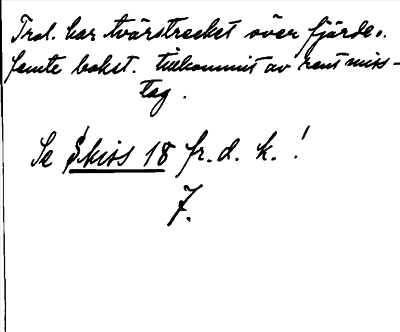 Trol. har tvärstrecket över fjärde o.
femte bokst. tillkommit av rent miss-
tag.
Se Skiss 18 fr. d. k. !
7.